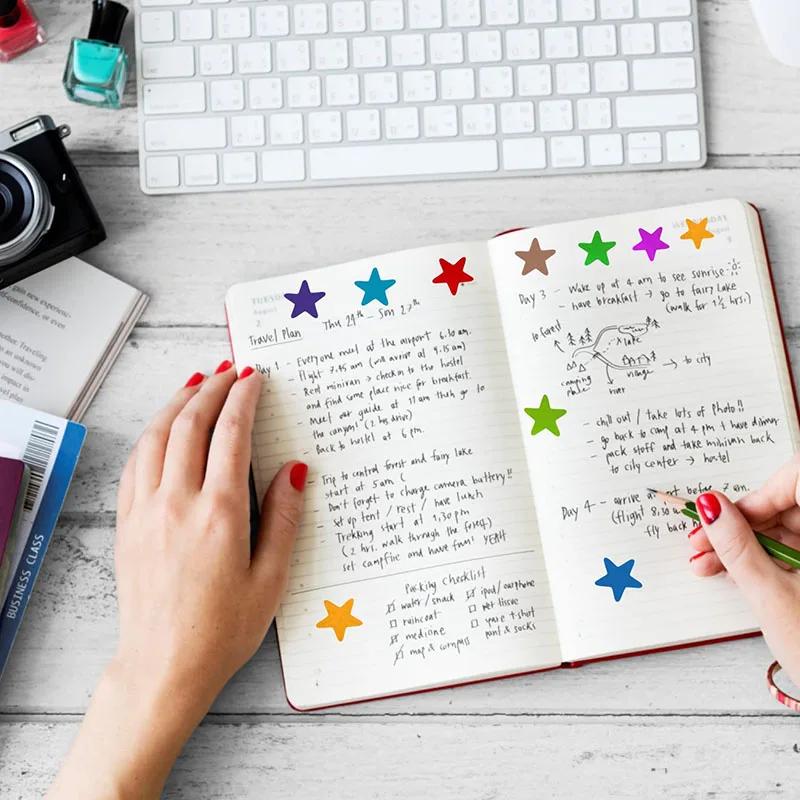 TUESDAY
August
2
Travel Plan Thu 24th - Son 27th
Day 1 - Everyone meet at the airport 6.30 am.
- Flight 7.45 am (will arrive at 9.15 am)
- Rent minivan → check in to the hostel
and find some place nice for breakfast.
- Meet our guide at 11 am then go to
the canyons (2 hrs drive)
- Back to hostel at 6 pm.
- Trip to central forest and fairy lake
start at 5 am (
- Don't forget to charge camera battery!!
- set up tent / rest / have lunch
- Trekking start at 1.30 pm
(2 hrs. walk through the forest)
set campfire and have fun! YEAH
Packing Checklist
water / snack
raincoat
medicine
map & compass
ipod / earphone
wet tissue
spare t-shirt
pant & socks
WEDNESDAY
August
3
Day 3 - Wake up at 4 am to see sunrise
- have breakfast → go to fairy lake
(walk for 1 1/2 hrs.)
to forest
lake
camping place
village
→ to city
river
- chill out / take lots of photo!!
- go back to camp at 4 pm + have dinner
- pack stuff and take minivan back
to city center → hostel
Day 4 - arrive a t before 7 am.
(flight 8.30 a
fly back
BUSINESS CLASS